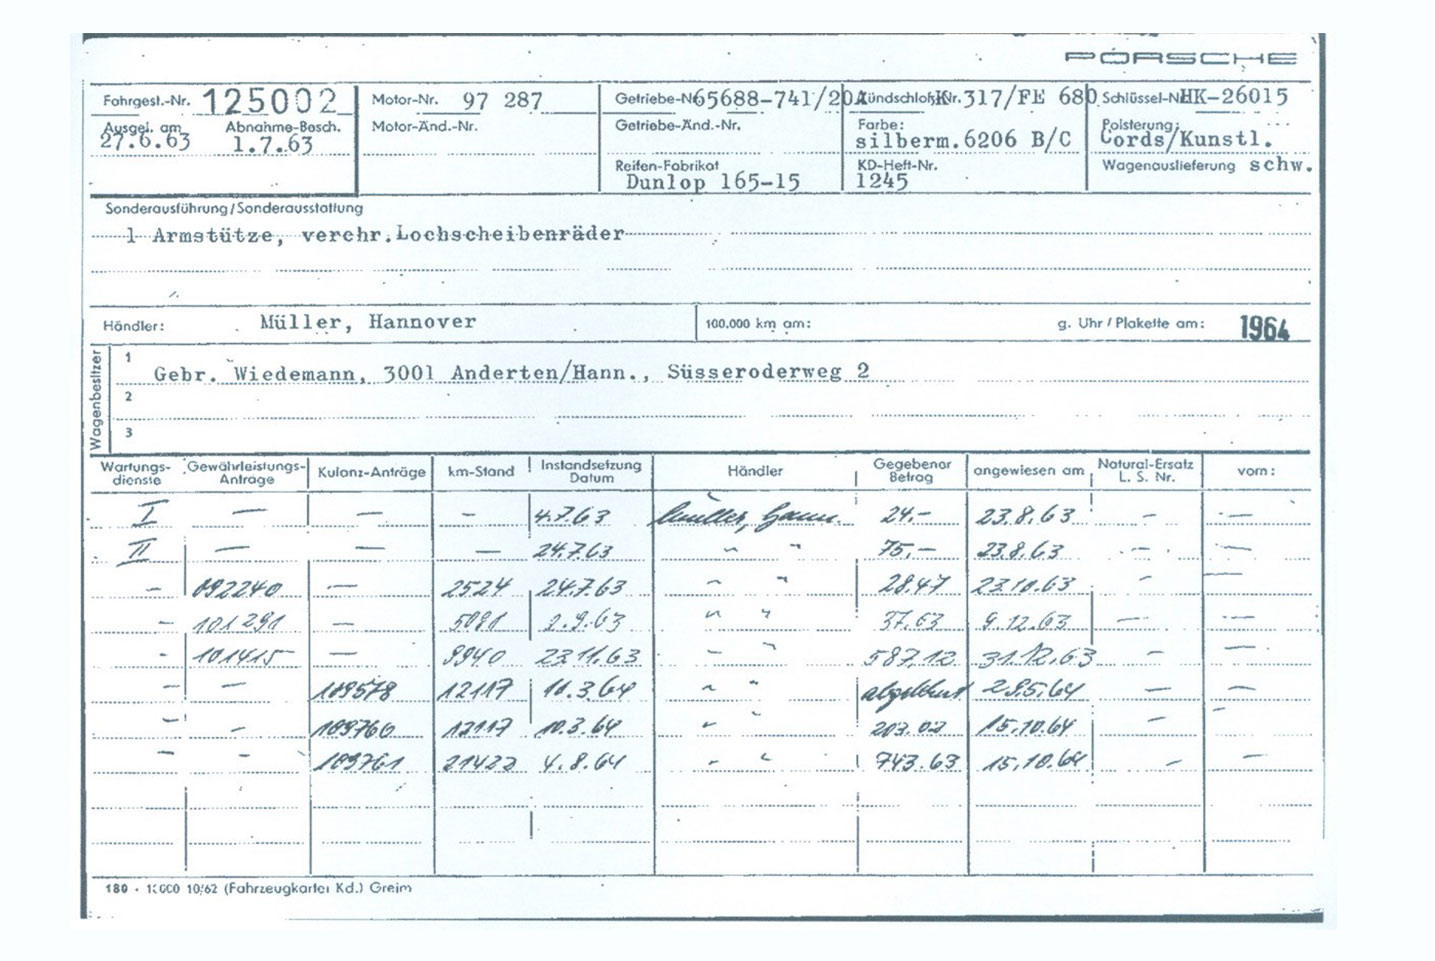 PORSCHE
Fahrgest.-Nr. 125002 Motor-Nr. 97 287 Getriebe-Nr. 65688-741/20A Zündschloß-Nr. K 317/FE 680 Schlüssel-Nr. HK-26015
Ausgel. am Abnahme-Besch. Motor-Änd.-Nr. Getriebe-Änd.-Nr. Farbe: Polsterung:
27.6.63 1.7.63 silberm.6206 B/C Cords/Kunstl.
Reifen-Fabrikat KD-Heft-Nr. Wagenauslieferung schw.
Dunlop 165-15 1245
Sonderausführung/Sonderausstattung
1 Armstütze, verchr.Lochscheibenräder
Händler: Müller, Hannover 100.000 km am: g. Uhr / Plakette am: 1964
Wagenbesitzer
1 Gebr. Wiedemann, 3001 Anderten/Hann., Süsseroderweg 2
2
3
Wartungs- Gewährleistungs- Kulanz-Anträge km-Stand Instandsetzung Händler Gegebener angewiesen am Natural-Ersatz vom:
dienste Anträge Datum Betrag L. S. Nr.
I — — — 4.7.63 Müller, Hann. 24.- 23.8.63 — —
II — — — 24.7.63 " " 75.— 23.8.63 — —
— 092240 — 2524 24.7.63 " " 28.47 23.10.63 — —
— 101291 — 5081 2.9.63 " " 37.63 9.12.63 — —
— 101415 — 9940 23.11.63 " " 587.12 31.12.63 — —
— — 109578 12117 10.3.64 " " abgelehnt 29.5.64 — —
— — 109760 12117 10.3.64 " " 203.02 15.10.64 — —
— — 109761 21422 4.8.64 " " 743.63 15.10.64 — —
180 · 10/62 (Fahrzeugkartei Kd.) Greim